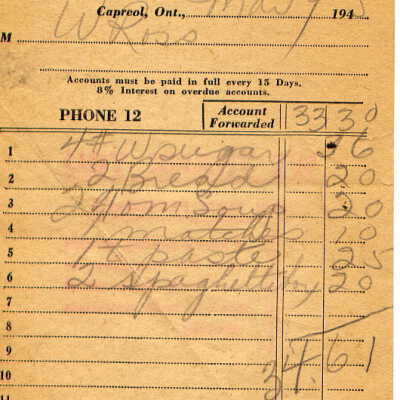 Capreol, Ont., 194
M W Ross
Accounts must be paid in full every 15 Days.
8% Interest on overdue accounts.
PHONE 12 Account Forwarded 33 30
1 4# W sugar 36
2 2 Bread 20
3 2 Tom Soup 20
4 1 matches 10
5 1 paste 25
6 2 spaghetti 20
7
8
9 34.61
10
11